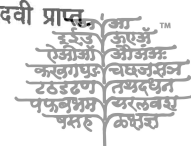 दवी प्राप्त.
आ TM
इईउ ऊए
ऐओऔ
कखगघङ चछजझञ
टठडढण तथदधन
पफबभम यरलवश
षसह ळक्षज्ञ